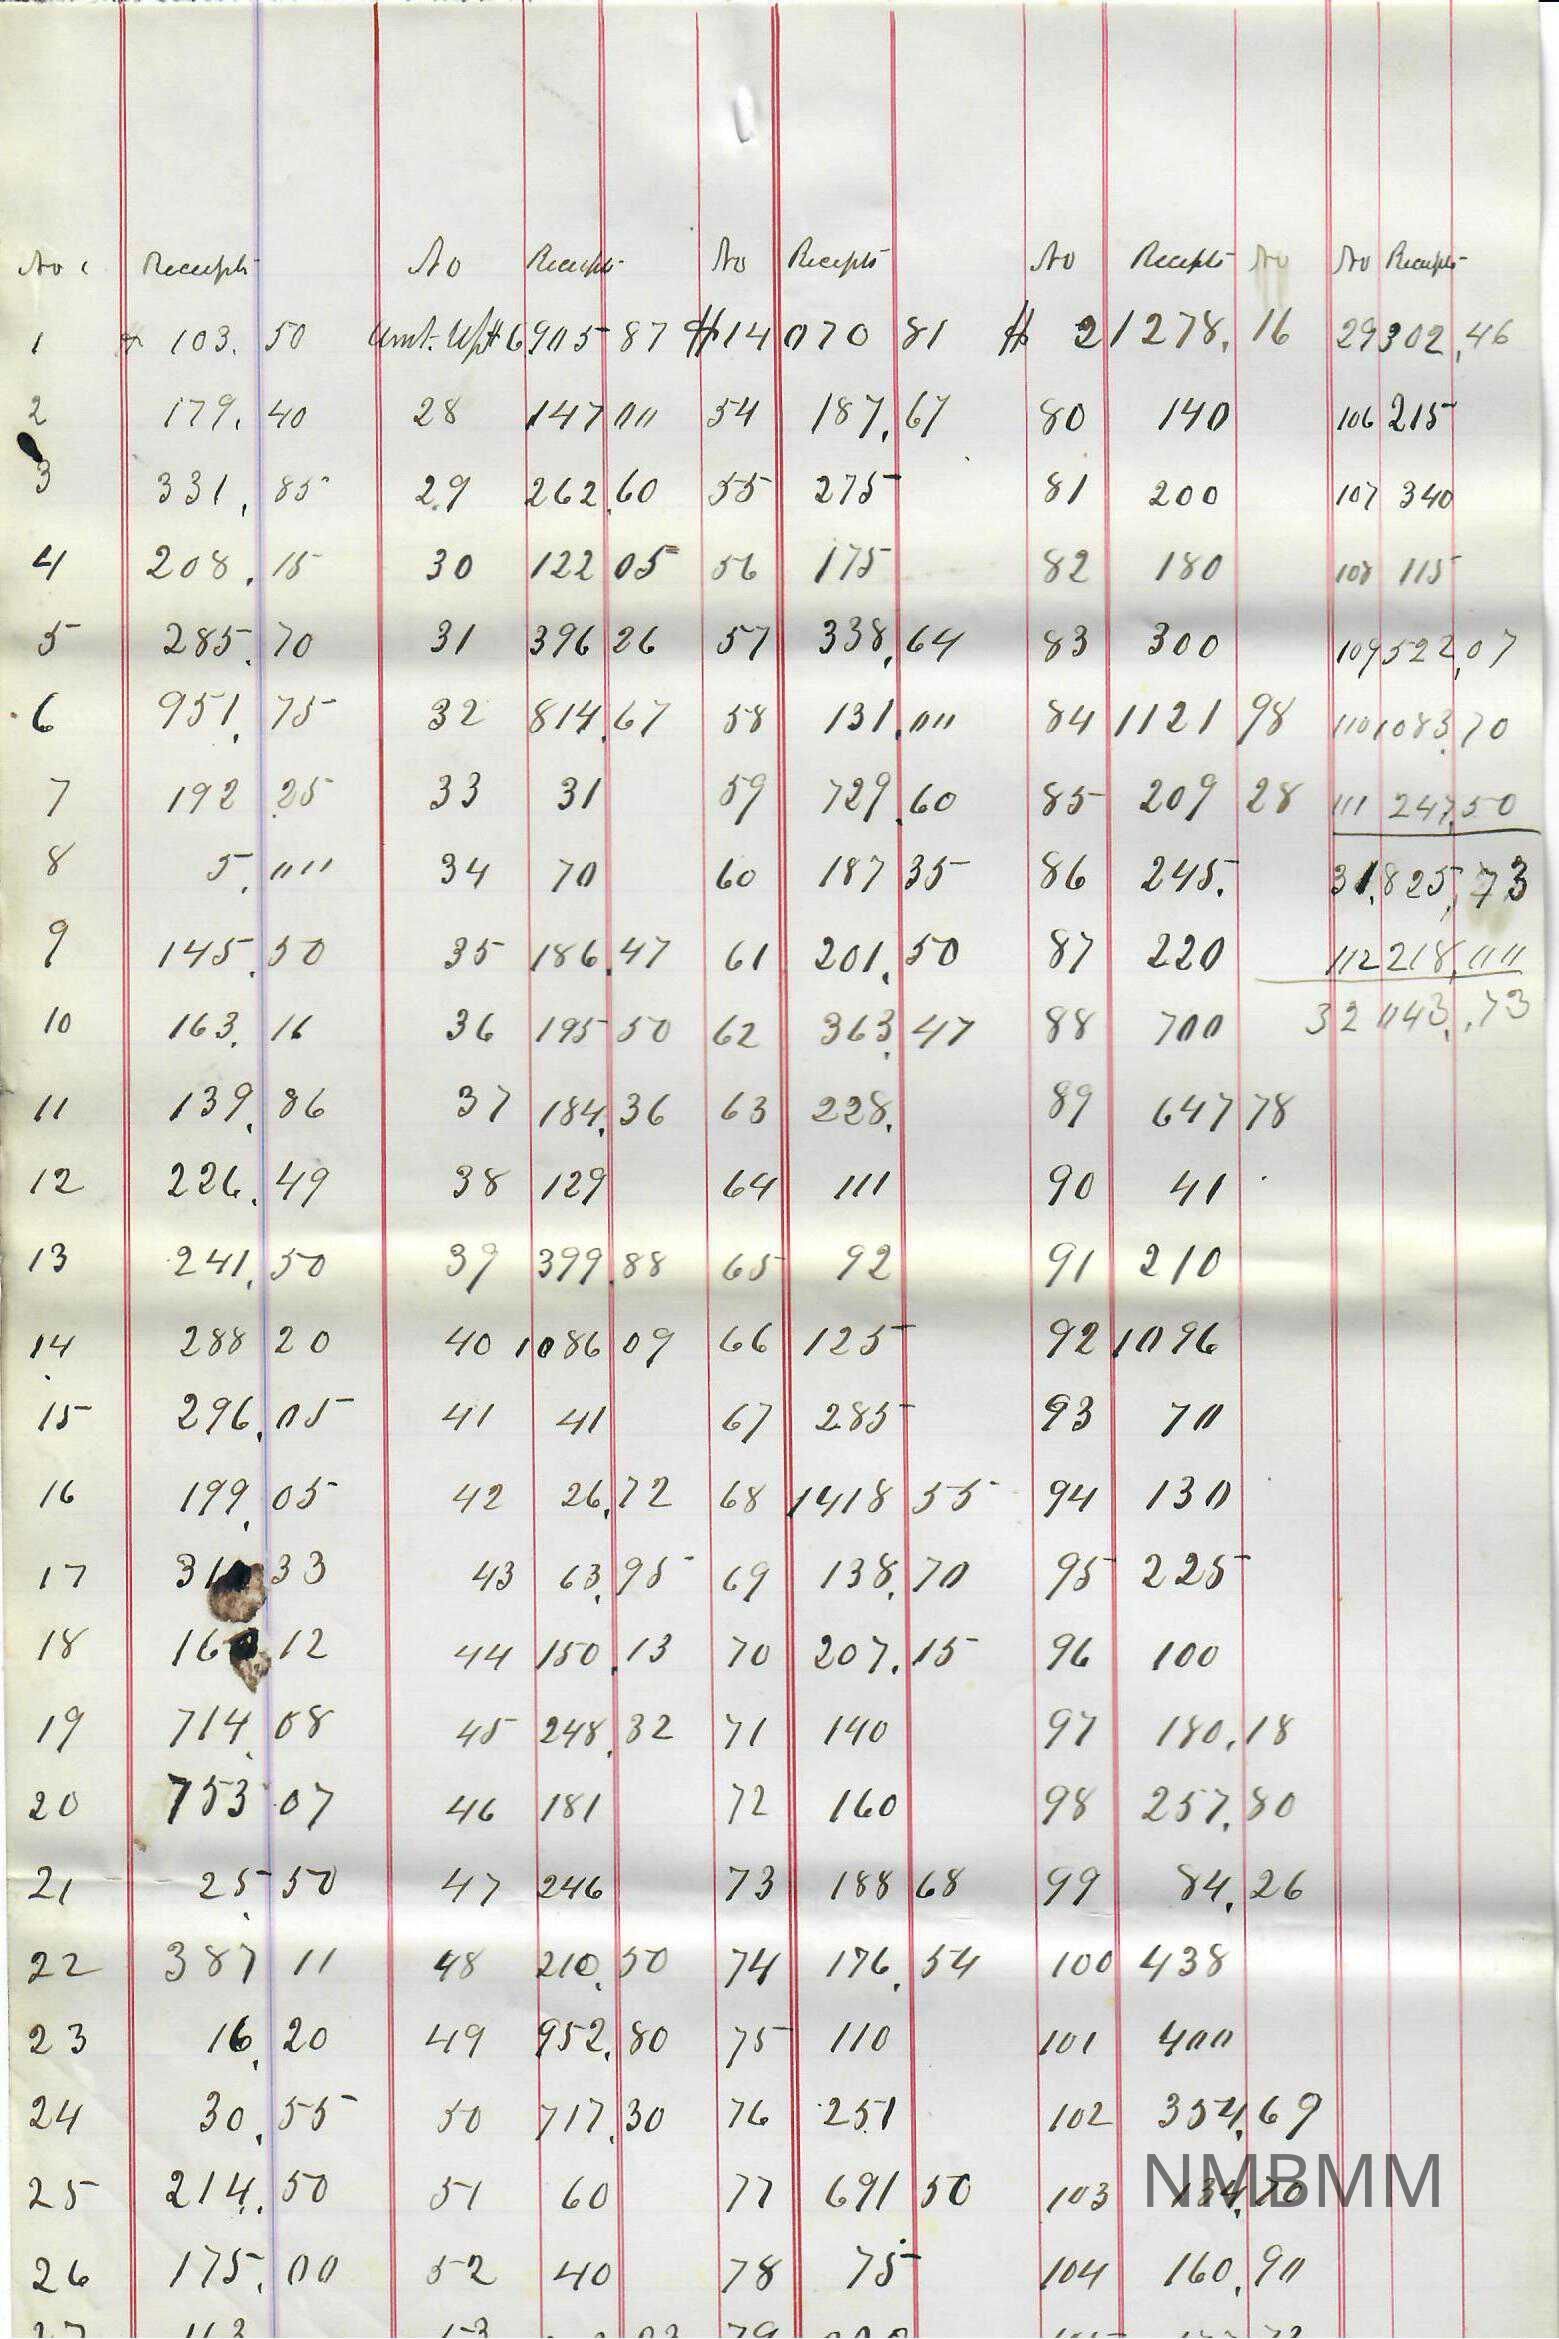 No. Receipts No Receipts No Receipts No Receipts No No Receipts
1 103. 50 Amt. Up # 6905 87 $14070 81 $ 21278. 16 29302.46
2 179. 40 28 147 00 54 187.67 80 140 106 215
3 331. 85 29 262.60 55 275 81 200 107 340
4 208. 15 30 122 05 56 175 82 180 108 115
5 285. 70 31 396 26 57 338.64 83 300 109 522.07
6 951. 75 32 814.67 58 131.00 84 1121 98 110 1083.70
7 192 .25 33 31 59 729.60 85 209 28 111 247.50
8 5. "" 34 70 60 187 35 86 245. 31,825,73
9 145. 50 35 186.47 61 201.50 87 220 112 218.""
10 163. 16 36 195 50 62 363.47 88 700 32 043..73
11 139. 86 37 184.36 63 228. 89 647 78
12 226. 49 38 129 64 111 90 41
13 241. 50 39 399.88 65 92 91 210
14 288 20 40 1086 09 66 125 92 1096
15 296. 05 41 41 67 285 93 70
16 199. 05 42 26.72 68 1418 55 94 130
17 33 43 63.95 69 138.70 95 225
18 12 44 150.13 70 207.15 96 100
19 714. 08 45 248.32 71 140 97 180.18
20 753 07 46 181 72 160 98 257.80
21 25. 50 47 246 73 188 68 99 84.26
22 387 11 48 210.50 74 176.54 100 438
23 16. 20 49 952.80 75 110 101 400
24 30. 55 50 717.30 76 251 102 354.69
25 214. 50 51 60 77 691 50 103 134.70
NMBMM
26 175. 00 52 40 78 75 104 160.90